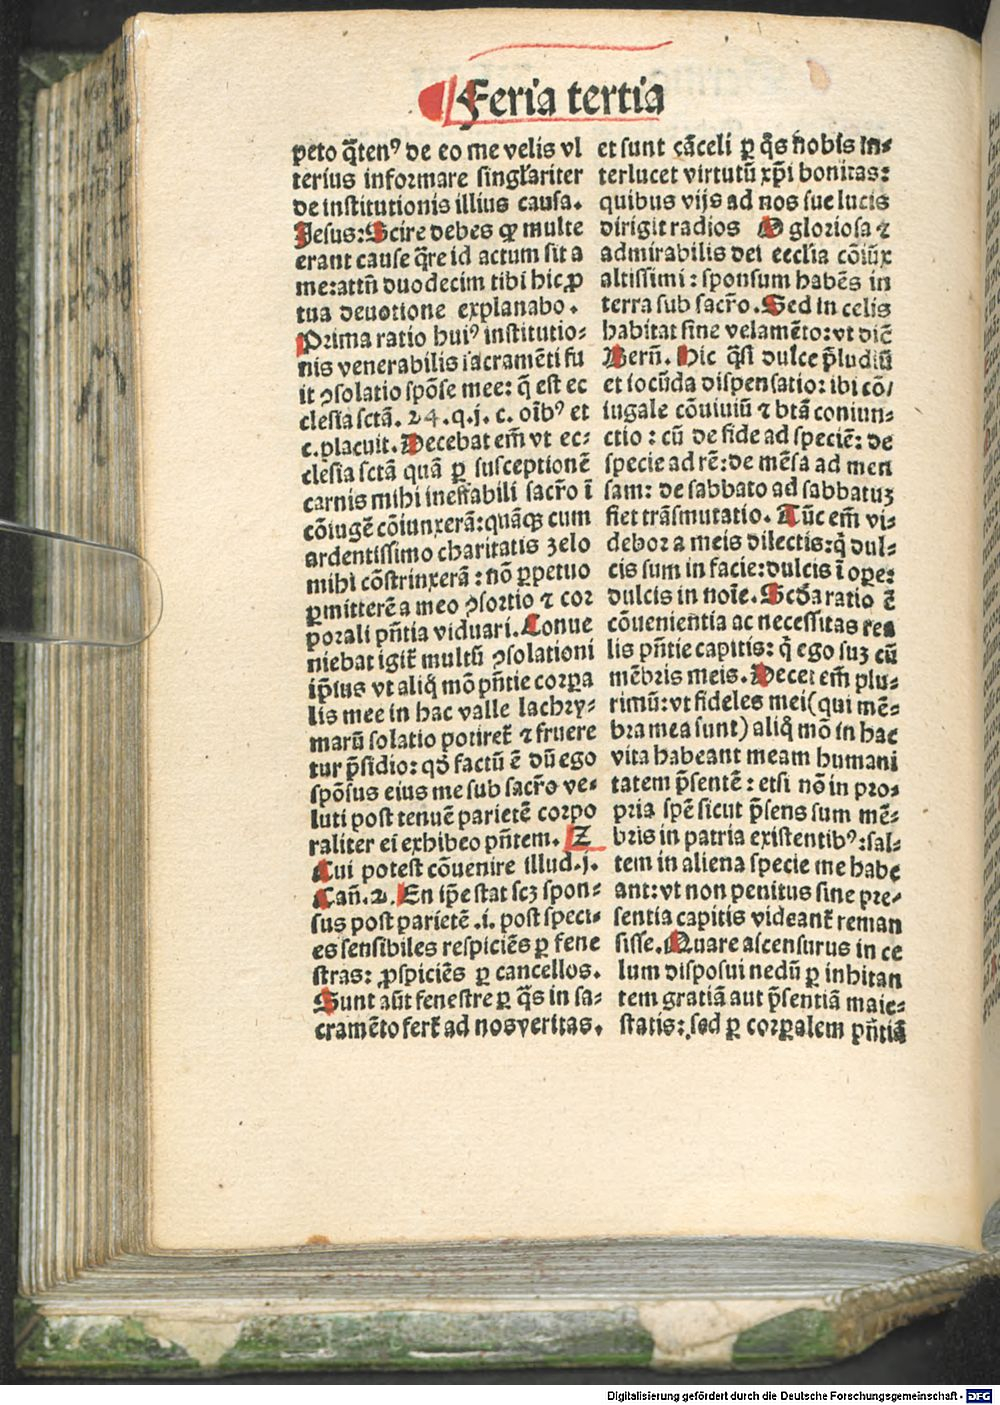 Feria tertia
peto q̄tenꝰ de eo me velis vl
terius informare singl'ariter
de institutionis illius causa.
Jesus: Scire debes ꝙ multe
erant cause q̄re id actum sit a
me: attñ duodecim tibi hic ꝓ
tua deuotione explanabo.
Prima ratio huiꝰ institutio⸗
nis venerabilis sacramēti fu
it ꝯsolatio spōse mee: q̄ est ec
clesia sctā. 24.q.j. c. oībꝰ et
c. placuit. Decebat em̄ vt ec⸗
clesia sctā quā ꝑ susceptionē
carnis mihi ineffabili sacr̄o ī
cōiugē cōiunxerā: quāqꝫ cum
ardentissimo charitatis zelo
mihi cōstrinxerā: nō ꝑpetuo
ꝑmitterē a meo ꝯsortio ⁊ cor
porali pn̄tia viduari. Conue
niebat igit̄ multū ꝯsolationi
ip̄ius vt aliq̄ mō pn̄tie corꝑa
lis mee in hac valle lachry⸗
marū solatio potiret̄ ⁊ fruere
tur p̄sidio: qd̄ factū ē dū ego
spōsus eius me sub sacr̄o ve⸗
luti post tenuē parietē corpo
raliter ei exhibeo pn̄tem. Z
Cui potest cōuenire illud. j.
Can̄. 2. En ip̄e stat scꝫ spon⸗
sus post parietē .i. post speci⸗
es sensibiles respiciēs ꝑ fene
stras: ꝓspiciēs ꝑ cancellos.
Sunt aūt fenestre ꝑ q̄s in sa⸗
cramēto fert̄ ad nos veritas.
et sunt cāceli ꝑ q̄s nobis in⸗
terlucet virtutū xp̄i bonitas:
quibus vijs ad nos sue lucis
dirigit radios O gloriosa ⁊
admirabilis dei ecclīa cōiūx
altissimi: sponsum habēs in
terra sub sacr̄o. Sed in celis
habitat sine velamēto: vt dic̄
Bern̄. Hic q̄si dulce p̄ludiū
et iocūda dispensatio: ibi cō/
iugale cōuiuiū ⁊ btā coniun⸗
ctio: cū de fide ad speciē: de
specie ad rē: de mēsa ad men
sam: de sabbato ad sabbatuꝫ
fiet trāsmutatio. Tūc em̄ vi⸗
debor a meis dilectis: q̄ dul⸗
cis sum in facie: dulcis ī ope:
dulcis in noīe. Scd̄a ratio ē
cōuenientia ac necessitas rea
lis pn̄tie capitis: q̄ ego suꝫ cū
mēbris meis. Decet em̄ plu⸗
rimū: vt fideles mei (qui mē⸗
bra mea sunt) aliq̄ mō in hac
vita habeant meam humani
tatem p̄sentē: etsi nō in pro⸗
pria spē sicut p̄sens sum mē⸗
bris in patria existentibꝰ: sal⸗
tem in aliena specie me habe
ant: vt non penitus sine pre⸗
sentia capitis videant̄ reman
sisse. Quare ascensurus in ce
lum disposui nedū ꝑ inhitan
tem gratiā aut p̄sentiā maie⸗
statis: sed ꝑ corꝑalem pn̄tiā
Digitalisierung gefördert durch die Deutsche Forschungsgemeinschaft - DFG